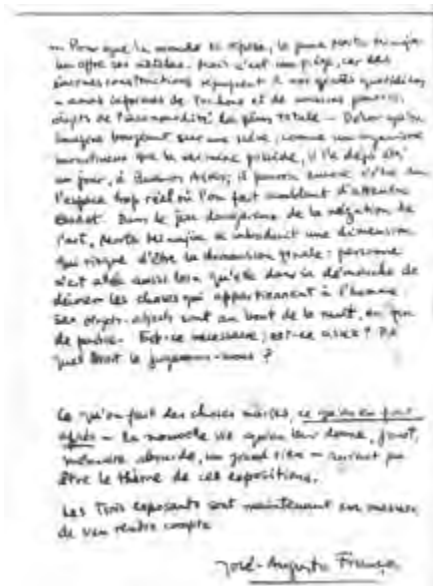 — Pour que le monde se repose, la jeune Marta Minujin
lui offre ses matelas. Mais c'est un piège, car ses
énormes constructions répugnent à nos gestes quotidiens
— amas informes de et de coussins pourris,
objets de l'incommodité la plus totale —
bougeant sur une scène, comme un organisme
monstrueux que la vermine possède, il l'a déjà été
un jour, à Buenos Aires; il pourra encore l'être dans
l'espace trop réel où l'on fait semblant d'attendre
Godot. Dans le jeu dangereux de la négation de
l'art, Marta Minujin a introduit une dimension
qui risque d'être la dimension finale: personne
n'est allé aussi loin qu'elle dans la démarche de
dénier les choses qui appartiennent à l'homme.
Ses objets-abjects sont au bout de la nuit, en fin
de. Est-ce nécessaire; est-ce assez? De
quel droit le jugerons-nous?
Ce qu'on fait des choses mortes, ce qu'on en fait
après — la nouvelle vie qu'on leur donne, jouet,
mémoire absurde, un grand rien — aurait pu
être le thème de ces expositions.
Les trois exposants sont maintenant en mesure
de s'en rendre compte
José-Augusto França